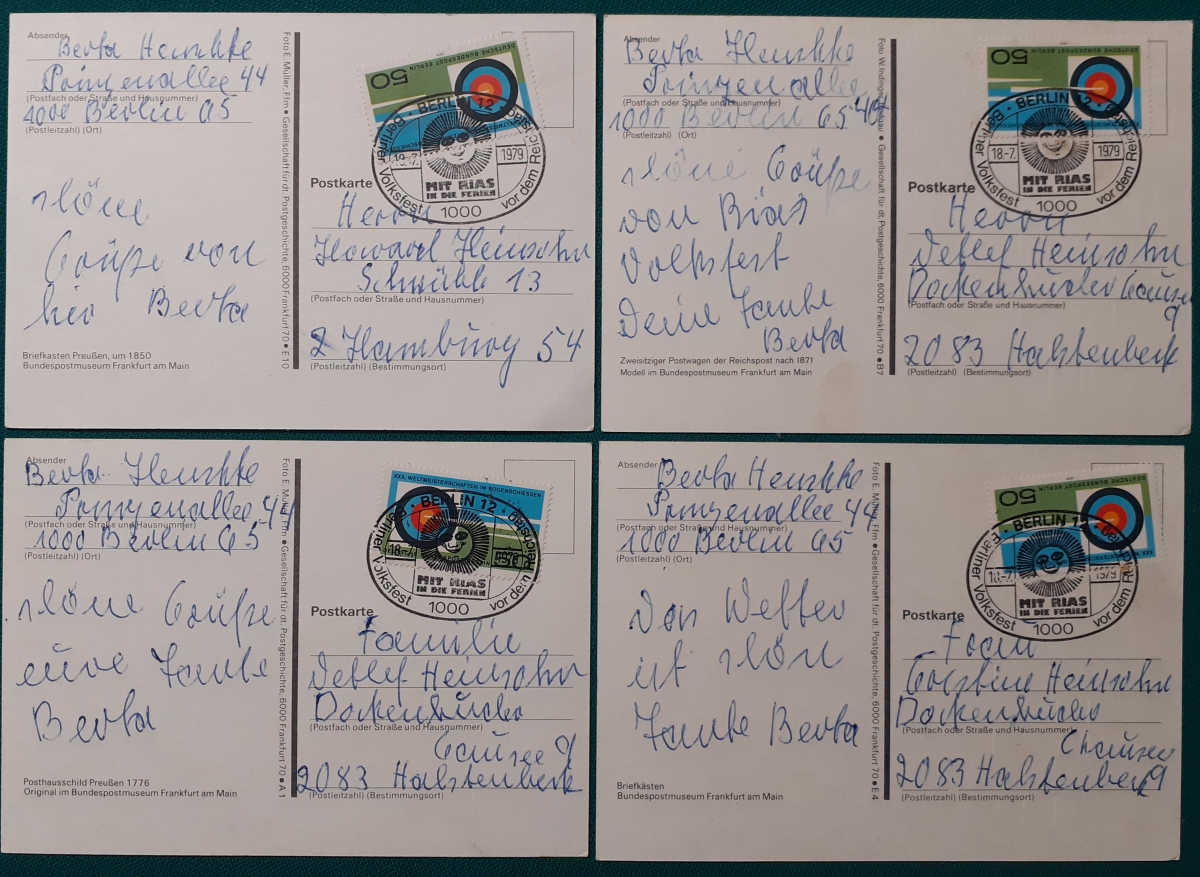 Absender
Berta Henschke
Prinzenallee 44
(Postfach oder Straße und Hausnummer)
1000 Berlin 65
(Postleitzahl) (Ort)
schöne
Grüße von
hier Berta
Briefkasten Preußen, um 1850
Bundespostmuseum Frankfurt am Main
Foto E. Müller, Ffm • Gesellschaft für dt. Postgeschichte, 6000 Frankfurt 70 • E 10
DEUTSCHE BUNDESPOST BERLIN
50
BERLIN 12
Berliner Volksfest vor dem Reichstag
18.-7. 1979
MIT RIAS
IN DIE FERIEN
1000
Postkarte
Herrn
Howard Heinsohn
(Postfach oder Straße und Hausnummer)
2 Hamburg 54
(Postleitzahl) (Bestimmungsort)
Absender
Berta Henschke
Prinzenallee
(Postfach oder Straße und Hausnummer)
1000 Berlin 65 44
(Postleitzahl) (Ort)
schöne Grüße
von Rias
Volksfest
Deine Tante
Berta
Zweisitziger Postwagen der Reichspost nach 1871
Modell im Bundespostmuseum Frankfurt am Main
Gesellschaft für dt. Postgeschichte, 6000 Frankfurt 70 • B 7
DEUTSCHE BUNDESPOST BERLIN
50
BERLIN 12
Berliner Volksfest vor dem Reichstag
18.-7. 1979
MIT RIAS
IN DIE FERIEN
1000
Postkarte
Herrn
Detlef Heinsohn
Dockenhudener Chaussee
(Postfach oder Straße und Hausnummer)
9
2083 Halstenbek
(Postleitzahl) (Bestimmungsort)
Absender
Berta Henschke
Prinzenallee 44
(Postfach oder Straße und Hausnummer)
1000 Berlin 65
(Postleitzahl) (Ort)
schöne Grüße
eure Tante
Berta
Posthausschild Preußen 1776
Original im Bundespostmuseum Frankfurt am Main
Foto E. Müller, Ffm • Gesellschaft für dt. Postgeschichte, 6000 Frankfurt 70 • A 1
XXX. WELTMEISTERSCHAFTEN IM BOGENSCHIESSEN
BERLIN 12
Berliner Volksfest vor dem Reichstag
18.-7. 1979
MIT RIAS
IN DIE FERIEN
1000
Postkarte
Familie
Detlef Heinsohn
Dockenhudener
(Postfach oder Straße und Hausnummer)
Chaussee 9
2083 Halstenbek
(Postleitzahl) (Bestimmungsort)
Absender
Berta Henschke
Prinzenallee 44
(Postfach oder Straße und Hausnummer)
1000 Berlin 65
(Postleitzahl) (Ort)
Das Wetter
ist schön
Tante Berta
Briefkästen
Bundespostmuseum Frankfurt am Main
Foto E. Müller, Ffm • Gesellschaft für dt. Postgeschichte, 6000 Frankfurt 70 • E 4
DEUTSCHE BUNDESPOST BERLIN
50
BERLIN 12
Berliner Volksfest vor dem Reichstag
18.-7. 1979
MIT RIAS
IN DIE FERIEN
1000
Postkarte
Frau
Heinsohn
Dockenhudener
(Postfach oder Straße und Hausnummer)
Chaussee
2083 Halstenbek 9
(Postleitzahl) (Bestimmungsort)